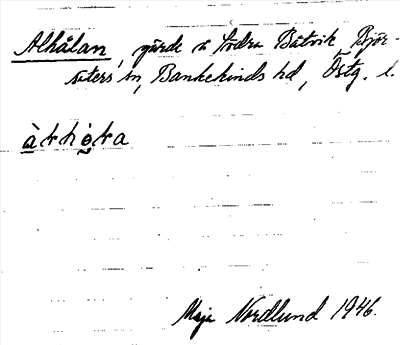 Alhålan, gärde å Södra Båtvik, Björ-
säters sn, Bankekinds hd, Östg. l.
Maja Nordlund 1946.